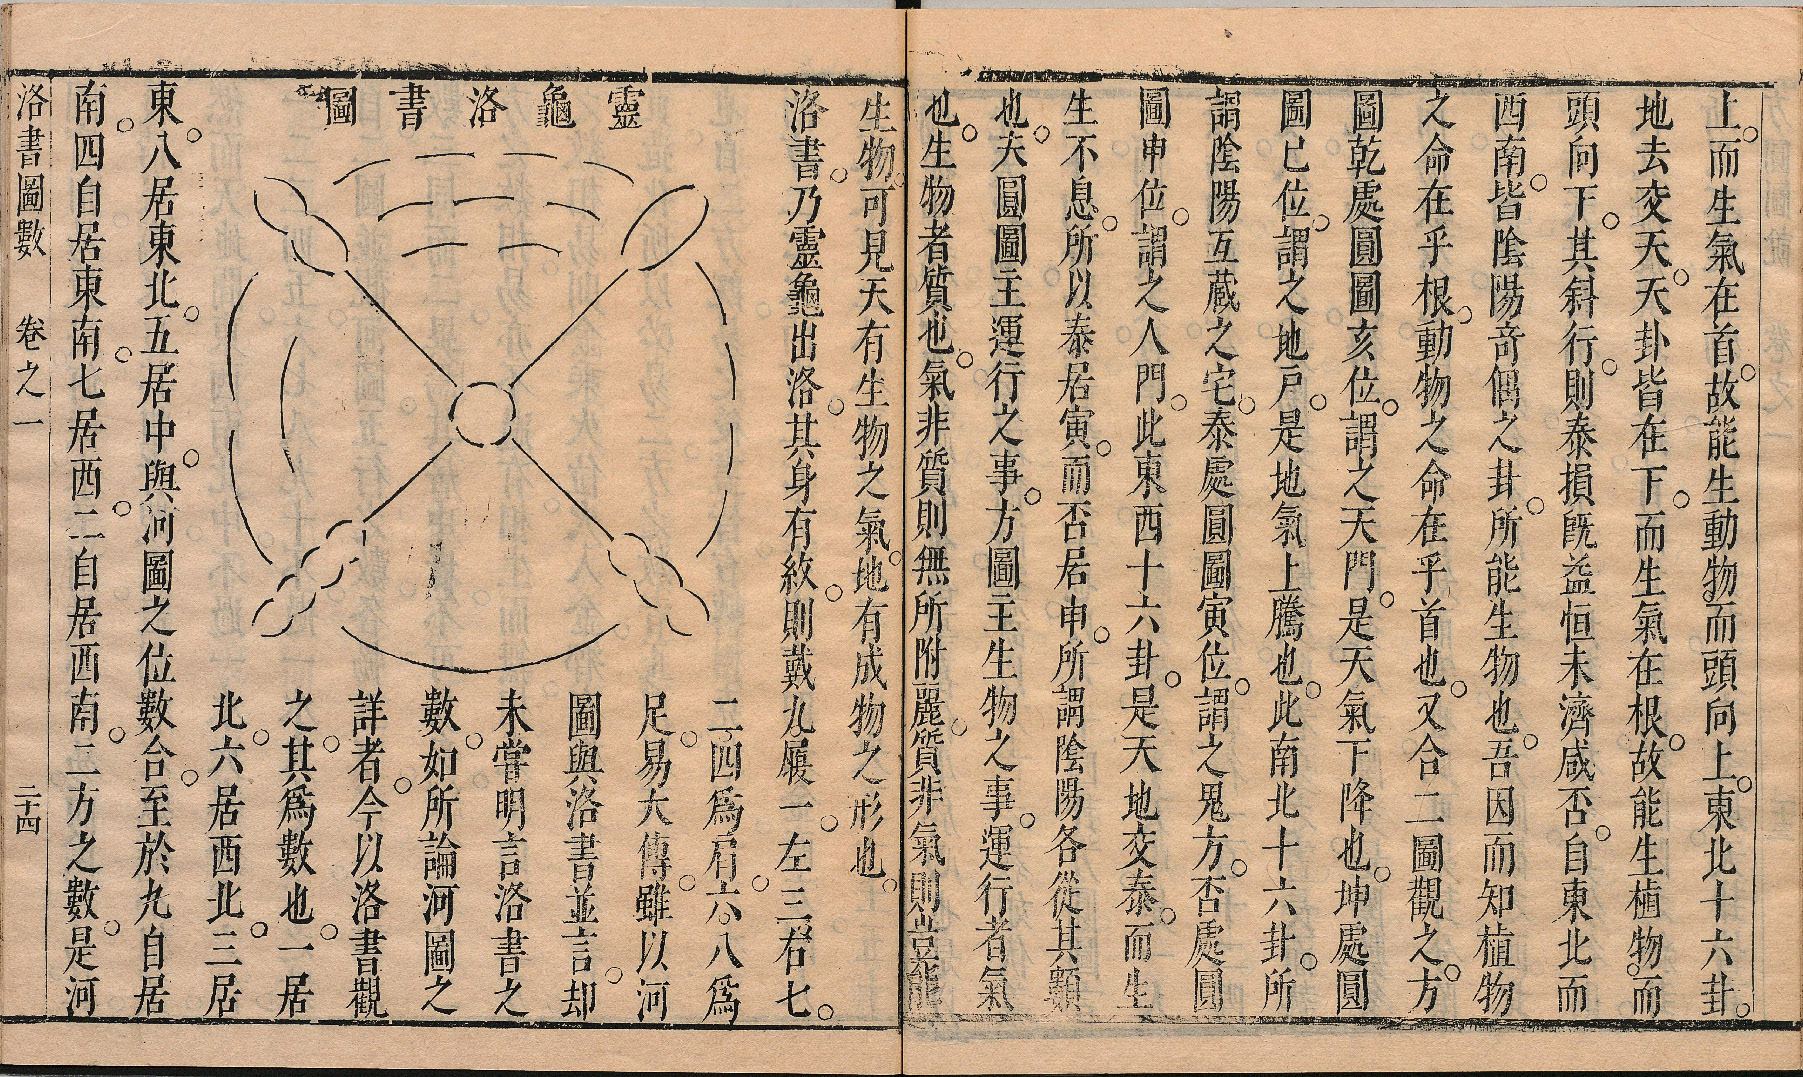 上而生氣在首故能生動物而頭向上東北十六卦
地去交天天卦皆在下而生氣在根故能生植物而
頭向下其斜行則泰損旣益恒未濟咸否自東北而
西南皆陰陽竒偶之卦所能生物也吾因而知植物
之命在乎根動物之命在乎首也又合二圖觀之方
圖乾處圓圖亥位謂之天門是天氣下降也坤處圓
圖巳位謂之地戸是地氣上騰也此南北十六卦所
謂陰陽互藏之宅泰處圓圖寅位謂之鬼方否處圓
圖申位謂之人門此東西十六卦是天地交泰而生
生不息所以泰居寅而否居申所謂陰陽各從其類
也夫圓圖主運行之事方圖主生物之事運行者氣
也生物者質也氣非質則無所附麗質非氣則豈能
生物可見天有生物之氣地有成物之形也
洛書乃靈龜出洛其身有紋則戴九履一左三右七
二四為肩六八為
足易大傳雖以河
圖與洛書並言却
未嘗明言洛書之
數如所論河圖之
詳者今以洛書觀
之其爲數也一居
北六居西北三居
靈龜洛書圖
東八居東北五居中與河圖之位數合至於九自居
南四自居東南七居西二自居西南二方之數是河
洛書圖數 卷之一 二十四